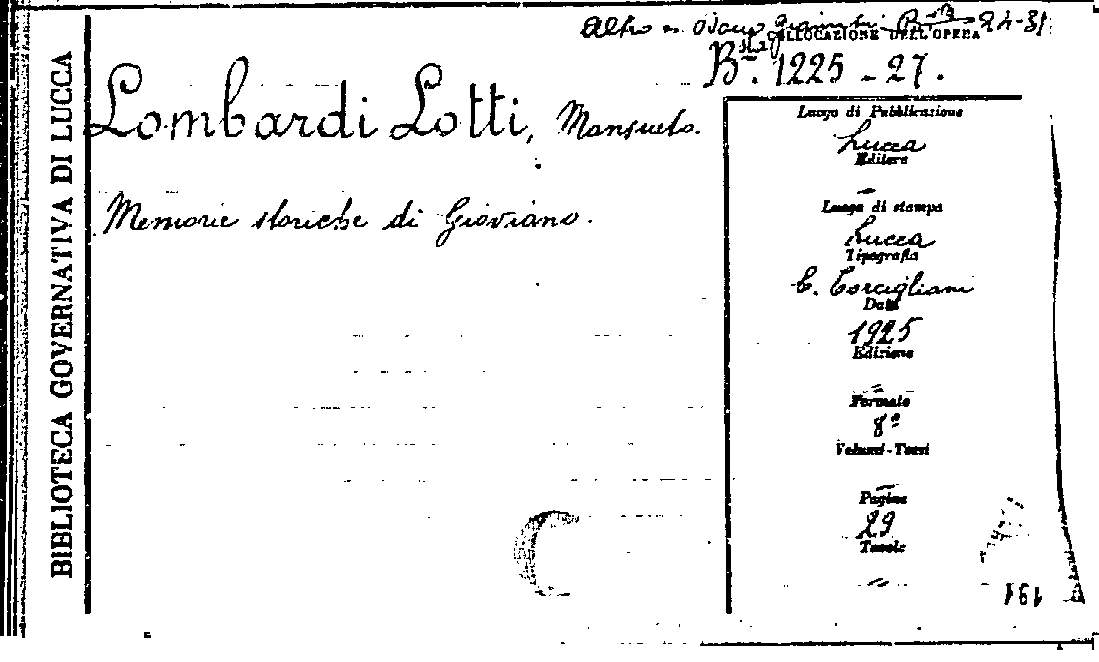 BIBLIOTECA GOVERNATIVA DI LUCCA
Altro
24-31
COLLOCAZIONE DELL'OPERA
Bta. 1225-27.
Lombardi Lotti, Mansueto.
Memorie storiche di Gioviano.
Luogo di Pubblicazione
Lucca
Editore
—
Luogo di stampa
Lucca
Tipografia
C. Torcigliani
Data
1925
Edizione
—
Formato
8º
Volumi-Tomi
—
Pagine
29
Tavole
—
191